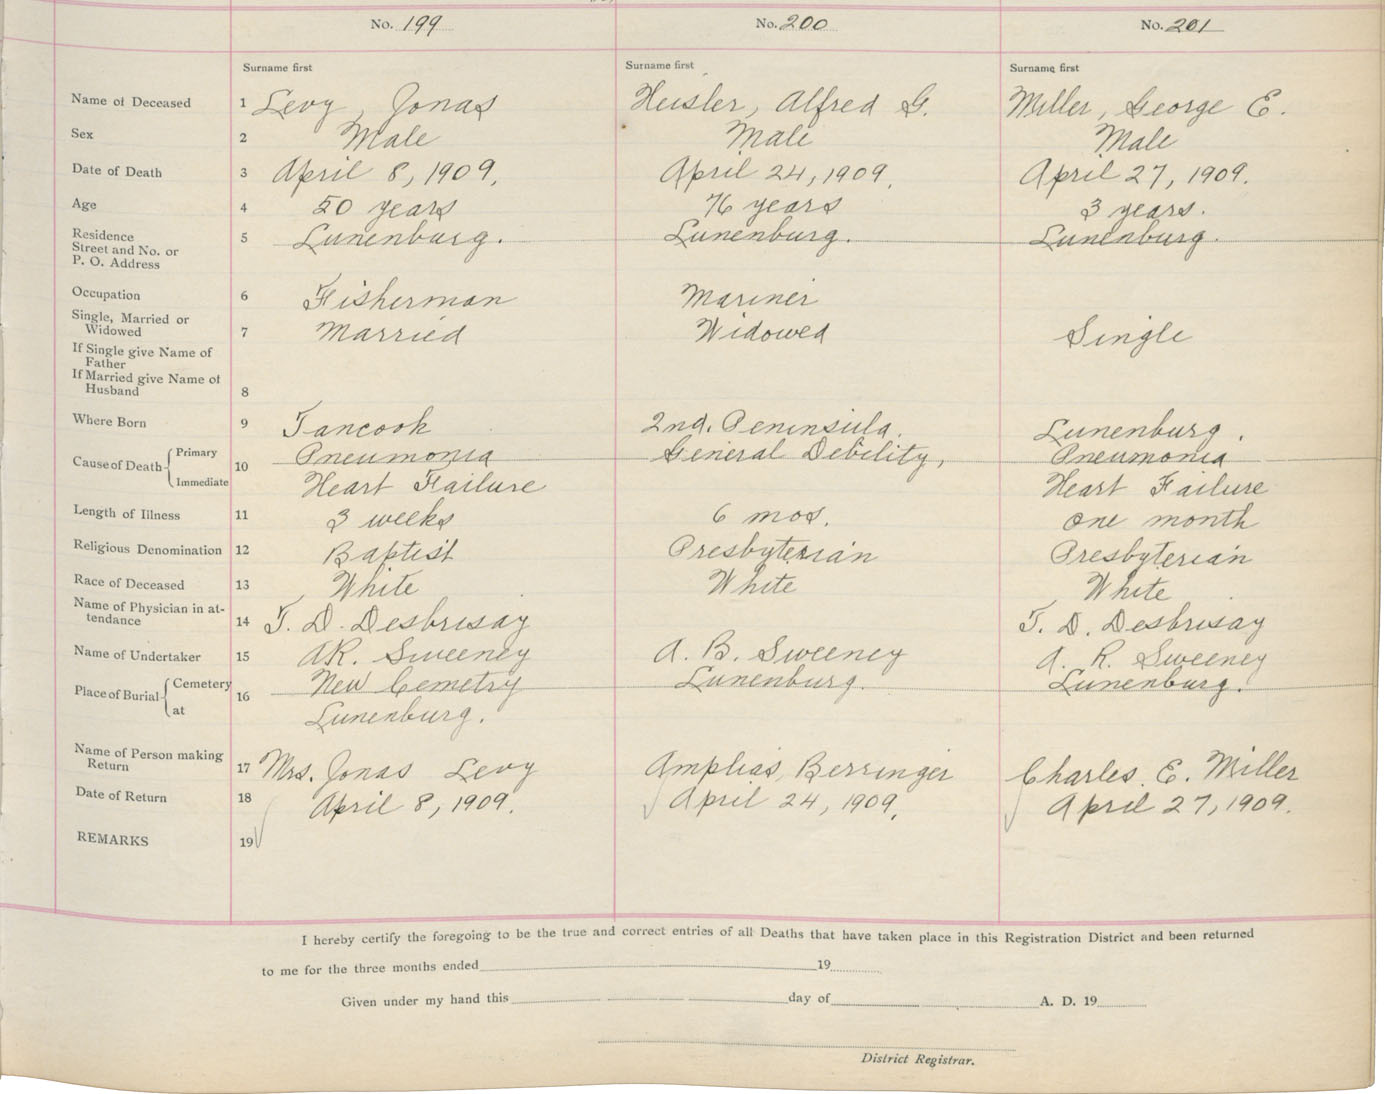 No. 199 No. 200 No. 201
Surname first Surname first Surname first
Name of Deceased 1 Levy, Jonas Heisler, Alfred G. Miller, George E.
Sex 2 Male Male Male
Date of Death 3 April 8, 1909. April 24, 1909. April 27, 1909.
Age 4 50 years 76 years 3 years.
Residence 5 Lunenburg. Lunenburg. Lunenburg.
Street and No. or
P. O. Address
Occupation 6 Fisherman Mariner
Single, Married or
Widowed 7 Married Widowed Single
If Single give Name of
Father
If Married give Name of
Husband 8
Where Born 9 Tancook 2nd. Peninsula. Lunenburg.
Cause of Death Primary 10 Pneumonia General Debility, Pneumonia
Immediate Heart Failure Heart Failure
Length of Illness 11 3 weeks 6 mos. one month
Religious Denomination 12 Baptist Presbyterian Presbyterian
Race of Deceased 13 White White White
Name of Physician in at-
tendance 14 T. D. Desbrisay T. D. Desbrisay
Name of Undertaker 15 AR. Sweeney A. B. Sweeney A. R. Sweeney
Place of Burial Cemetery 16 New Cemetry Lunenburg. Lunenburg.
at Lunenburg.
Name of Person making
Return 17 Mrs. Jonas Levy Amplias Berringer Charles. E. Miller
Date of Return 18 April 8, 1909. April 24, 1909. April 27, 1909.
REMARKS 19
I hereby certify the foregoing to be the true and correct entries of all Deaths that have taken place in this Registration District and been returned
to me for the three months ended 19
Given under my hand this day of A. D. 19
District Registrar.